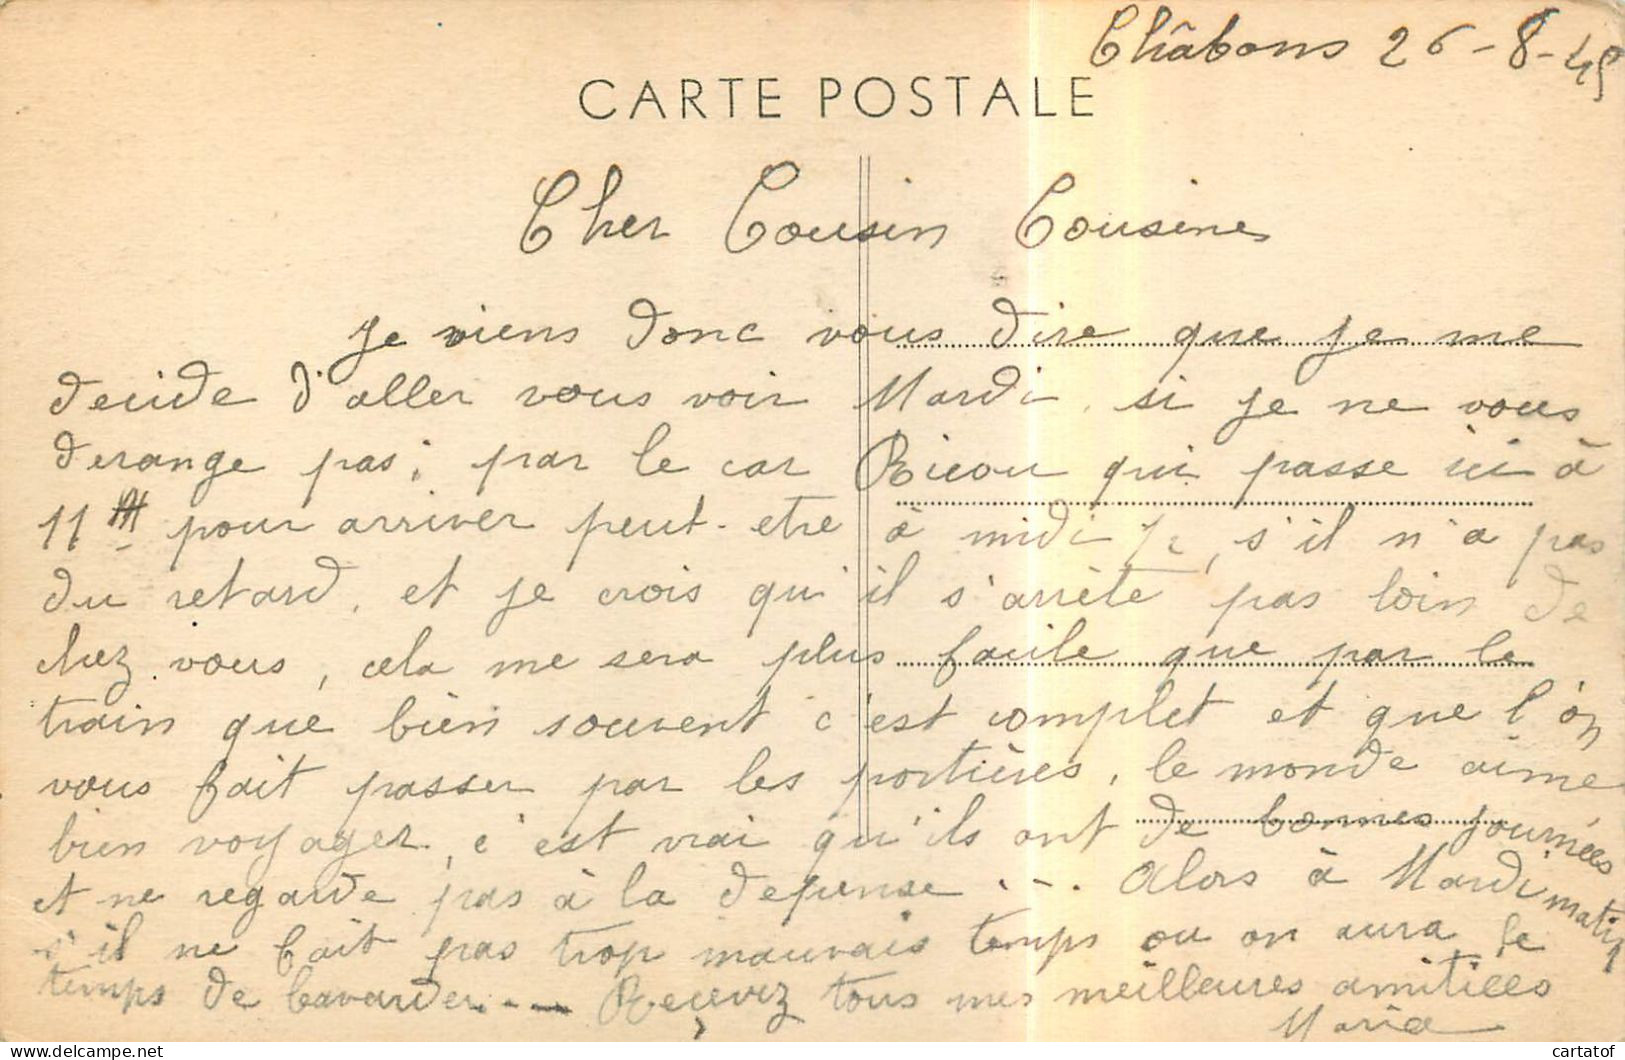 Châbons 26-8-45
CARTE POSTALE
Cher Cousin Cousine
Je viens donc vous dire que je me
decide d'aller vous voir Mardi, si je ne vous
derange pas, par le car Ricou qui passe ici à
11H pour arriver peut-etre à midi ½, s'il n'a pas
du retard, et je crois qu'il s'arrète pas loin de
chez vous, cela me sera plus facile que par le
train que bien souvent c'est complet et que l'on
vous fait passer par les portières, le monde aime
bien voyager, c'est vrai qu'ils ont de bonnes journées
et ne regarde pas à la depense... Alors à Mardi matin
s'il ne fait pas trop mauvais temps ou on aura le
temps de bavarder... Reçevez tous mes meilleures amitiées
Maria
cartatof